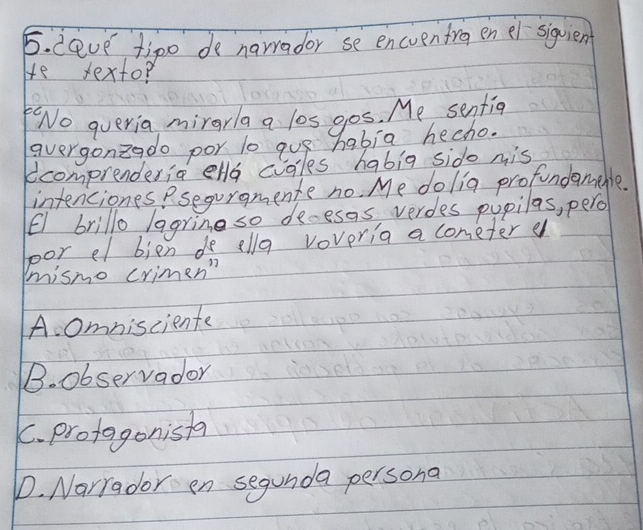 5. ¿Qué tipo de narrador se encuentra en el siguient
te texto?
"No queria mirarla a los ojos. Me sentia
avergonzado por lo que habia hecho.
¿comprenderia ella cuáles habia sido mis
intenciones? seguramente no. Me dolia profundamente.
El brillo lagrimoso de esas verdes pupilas, pero
por el bien de ella voveria a cometer el
mismo crimen"
A. Omnisciente
B. Observador
C. Protagonista
D. Narrador en segunda persona